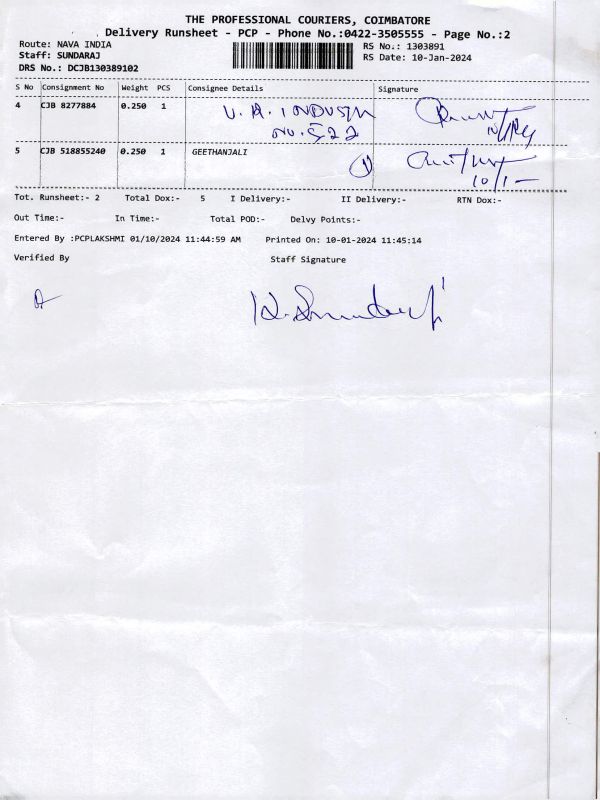 THE PROFESSIONAL COURIERS, COIMBATORE
Delivery Runsheet - PCP - Phone No.:0422-3505555 - Page No.:2
Route: NAVA INDIA RS No.: 1303891
Staff: SUNDARAJ RS Date: 10-Jan-2024
DRS No.: DCJB130389102
S No Consignment No Weight PCS Consignee Details Signature
4 CJB 8277884 0.250 1 U.A. INDUSTN
No. 522
5 CJB 518855240 0.250 1 GEETHANJALI
1 10/1-
Tot. Runsheet:- 2 Total Dox:- 5 I Delivery:- II Delivery:- RTN Dox:-
Out Time:- In Time:- Total POD:- Delvy Points:-
Entered By :PCPLAKSHMI 01/10/2024 11:44:59 AM Printed On: 10-01-2024 11:45:14
Verified By Staff Signature